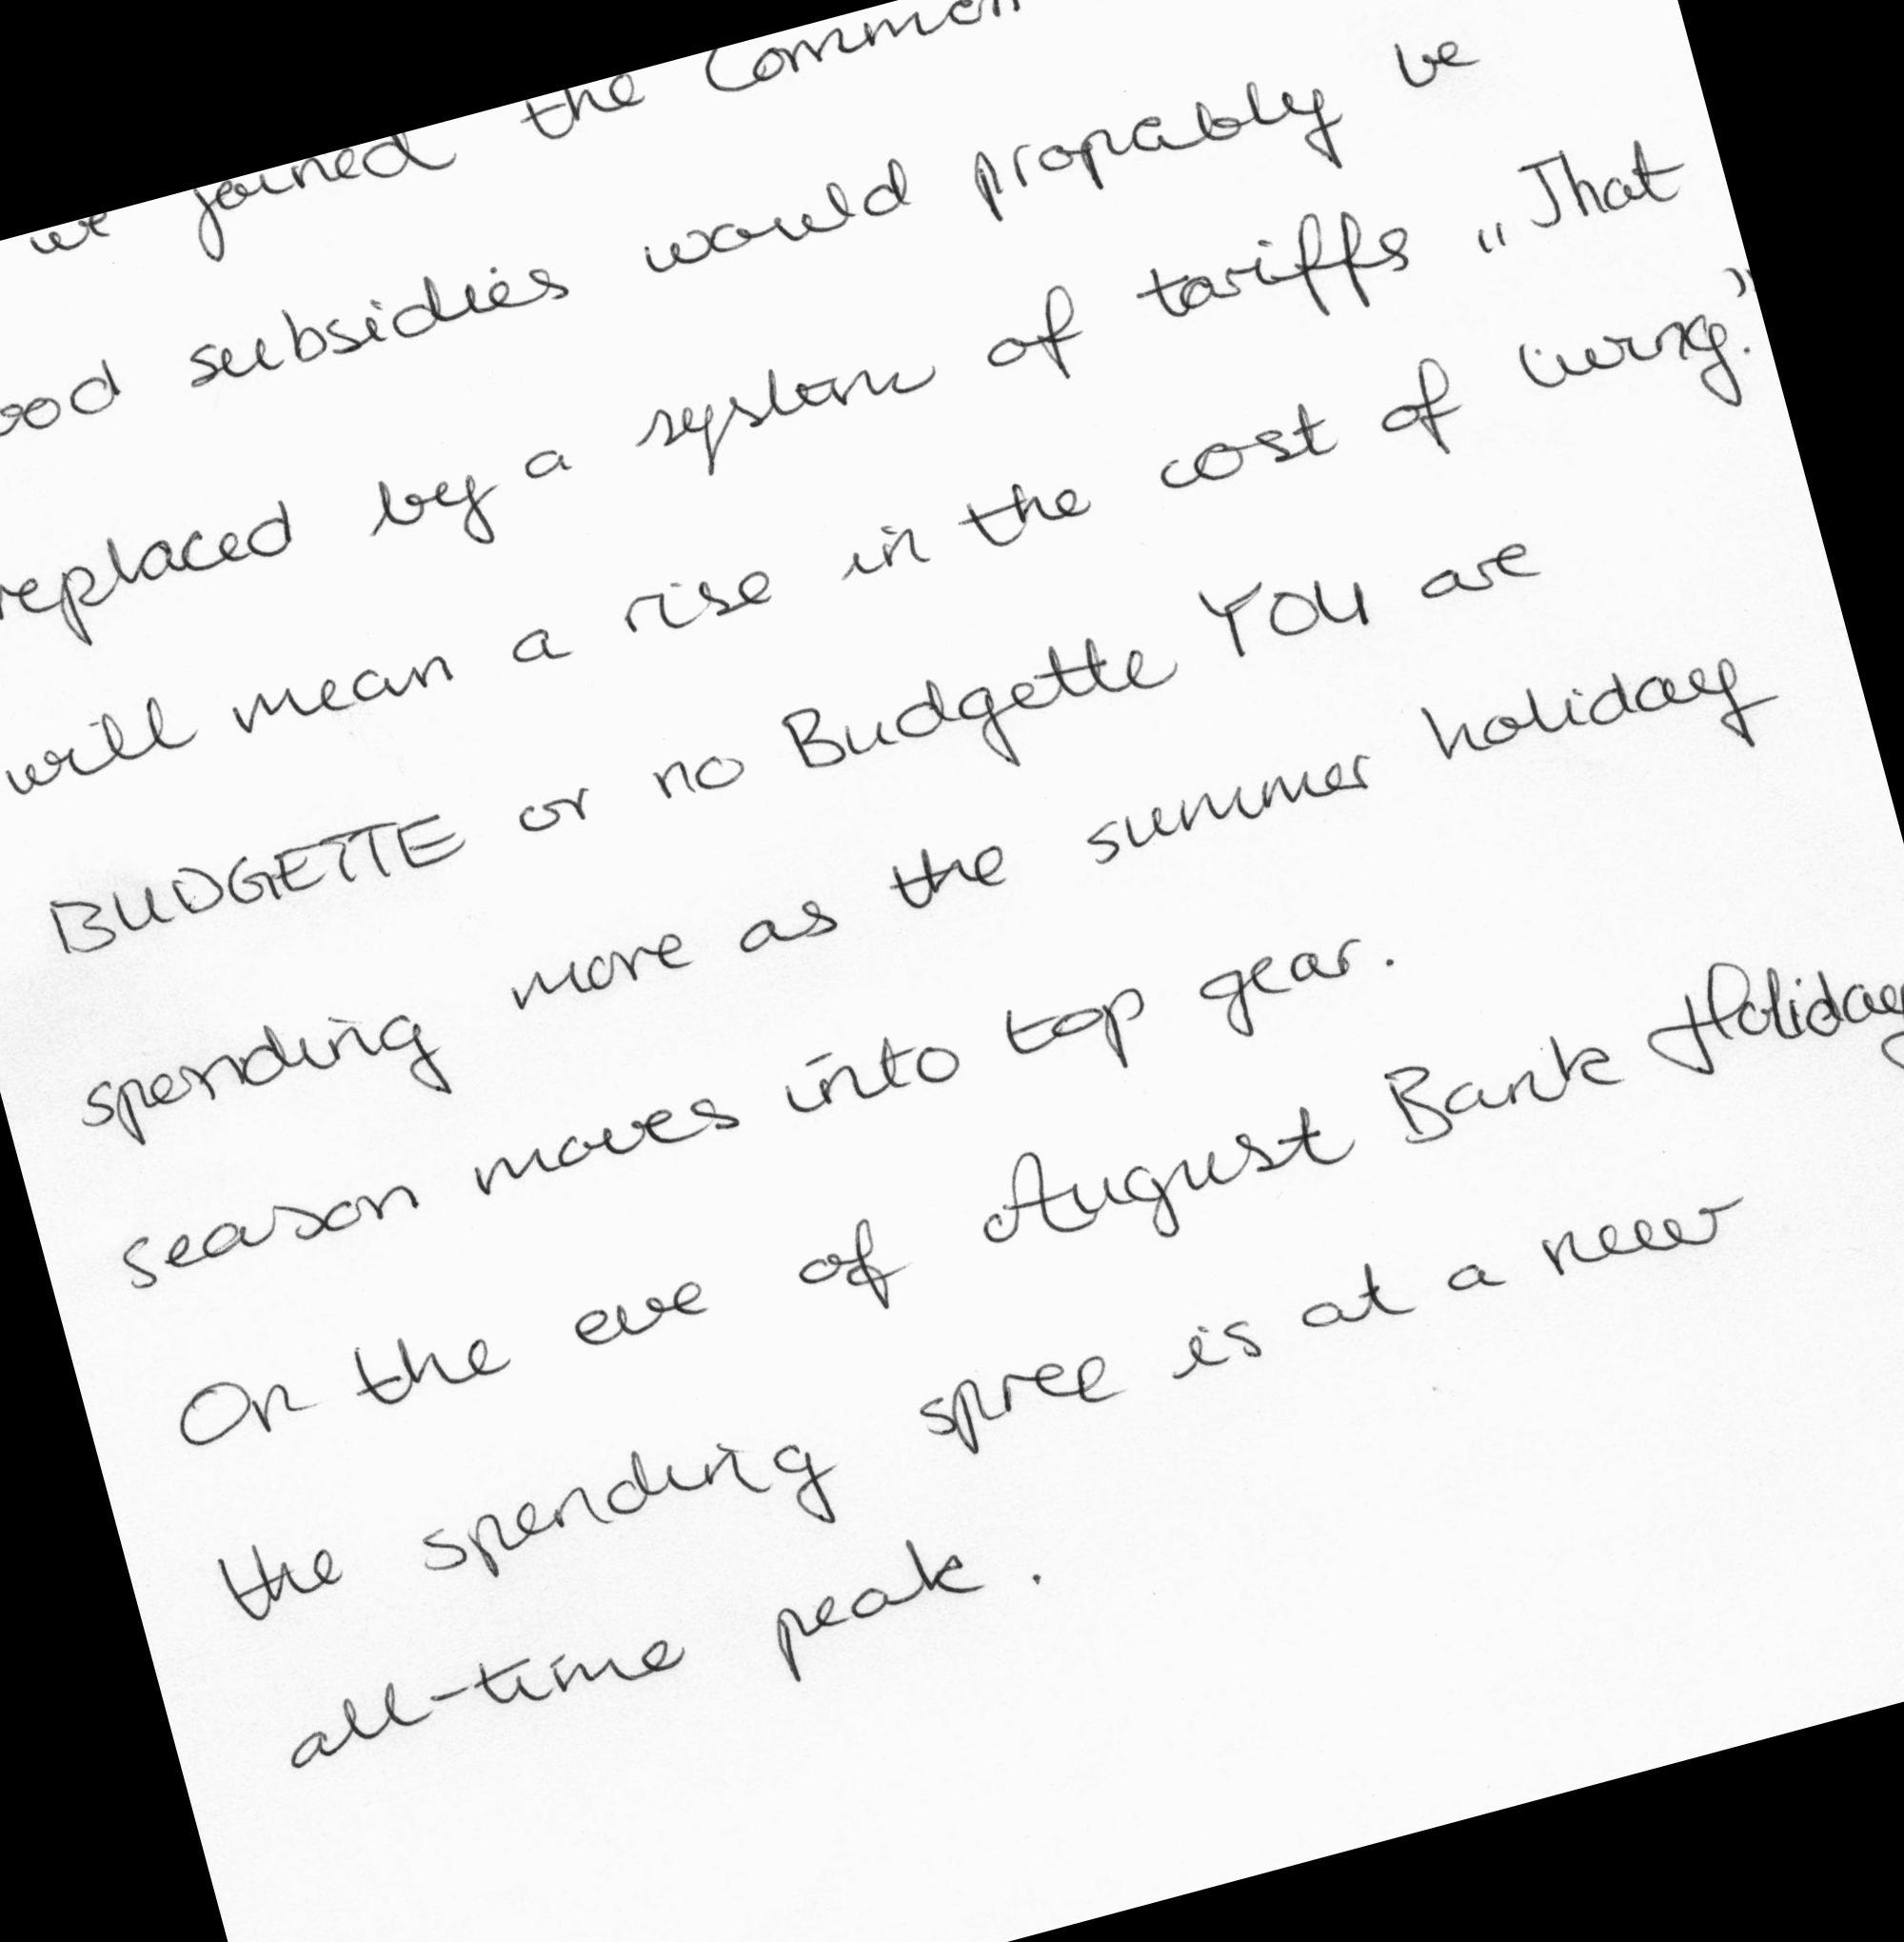 we joined the Common
ood subsidies would propably be
replaced by a system of tariffs „That
will mean a rise in the cost of living."
BUDGETTE or no Budgette YOU are
spending more as the summer holiday
season moves into top gear.
On the eve of August Bank Holiday
the spending spree is at a new
all-time peak.